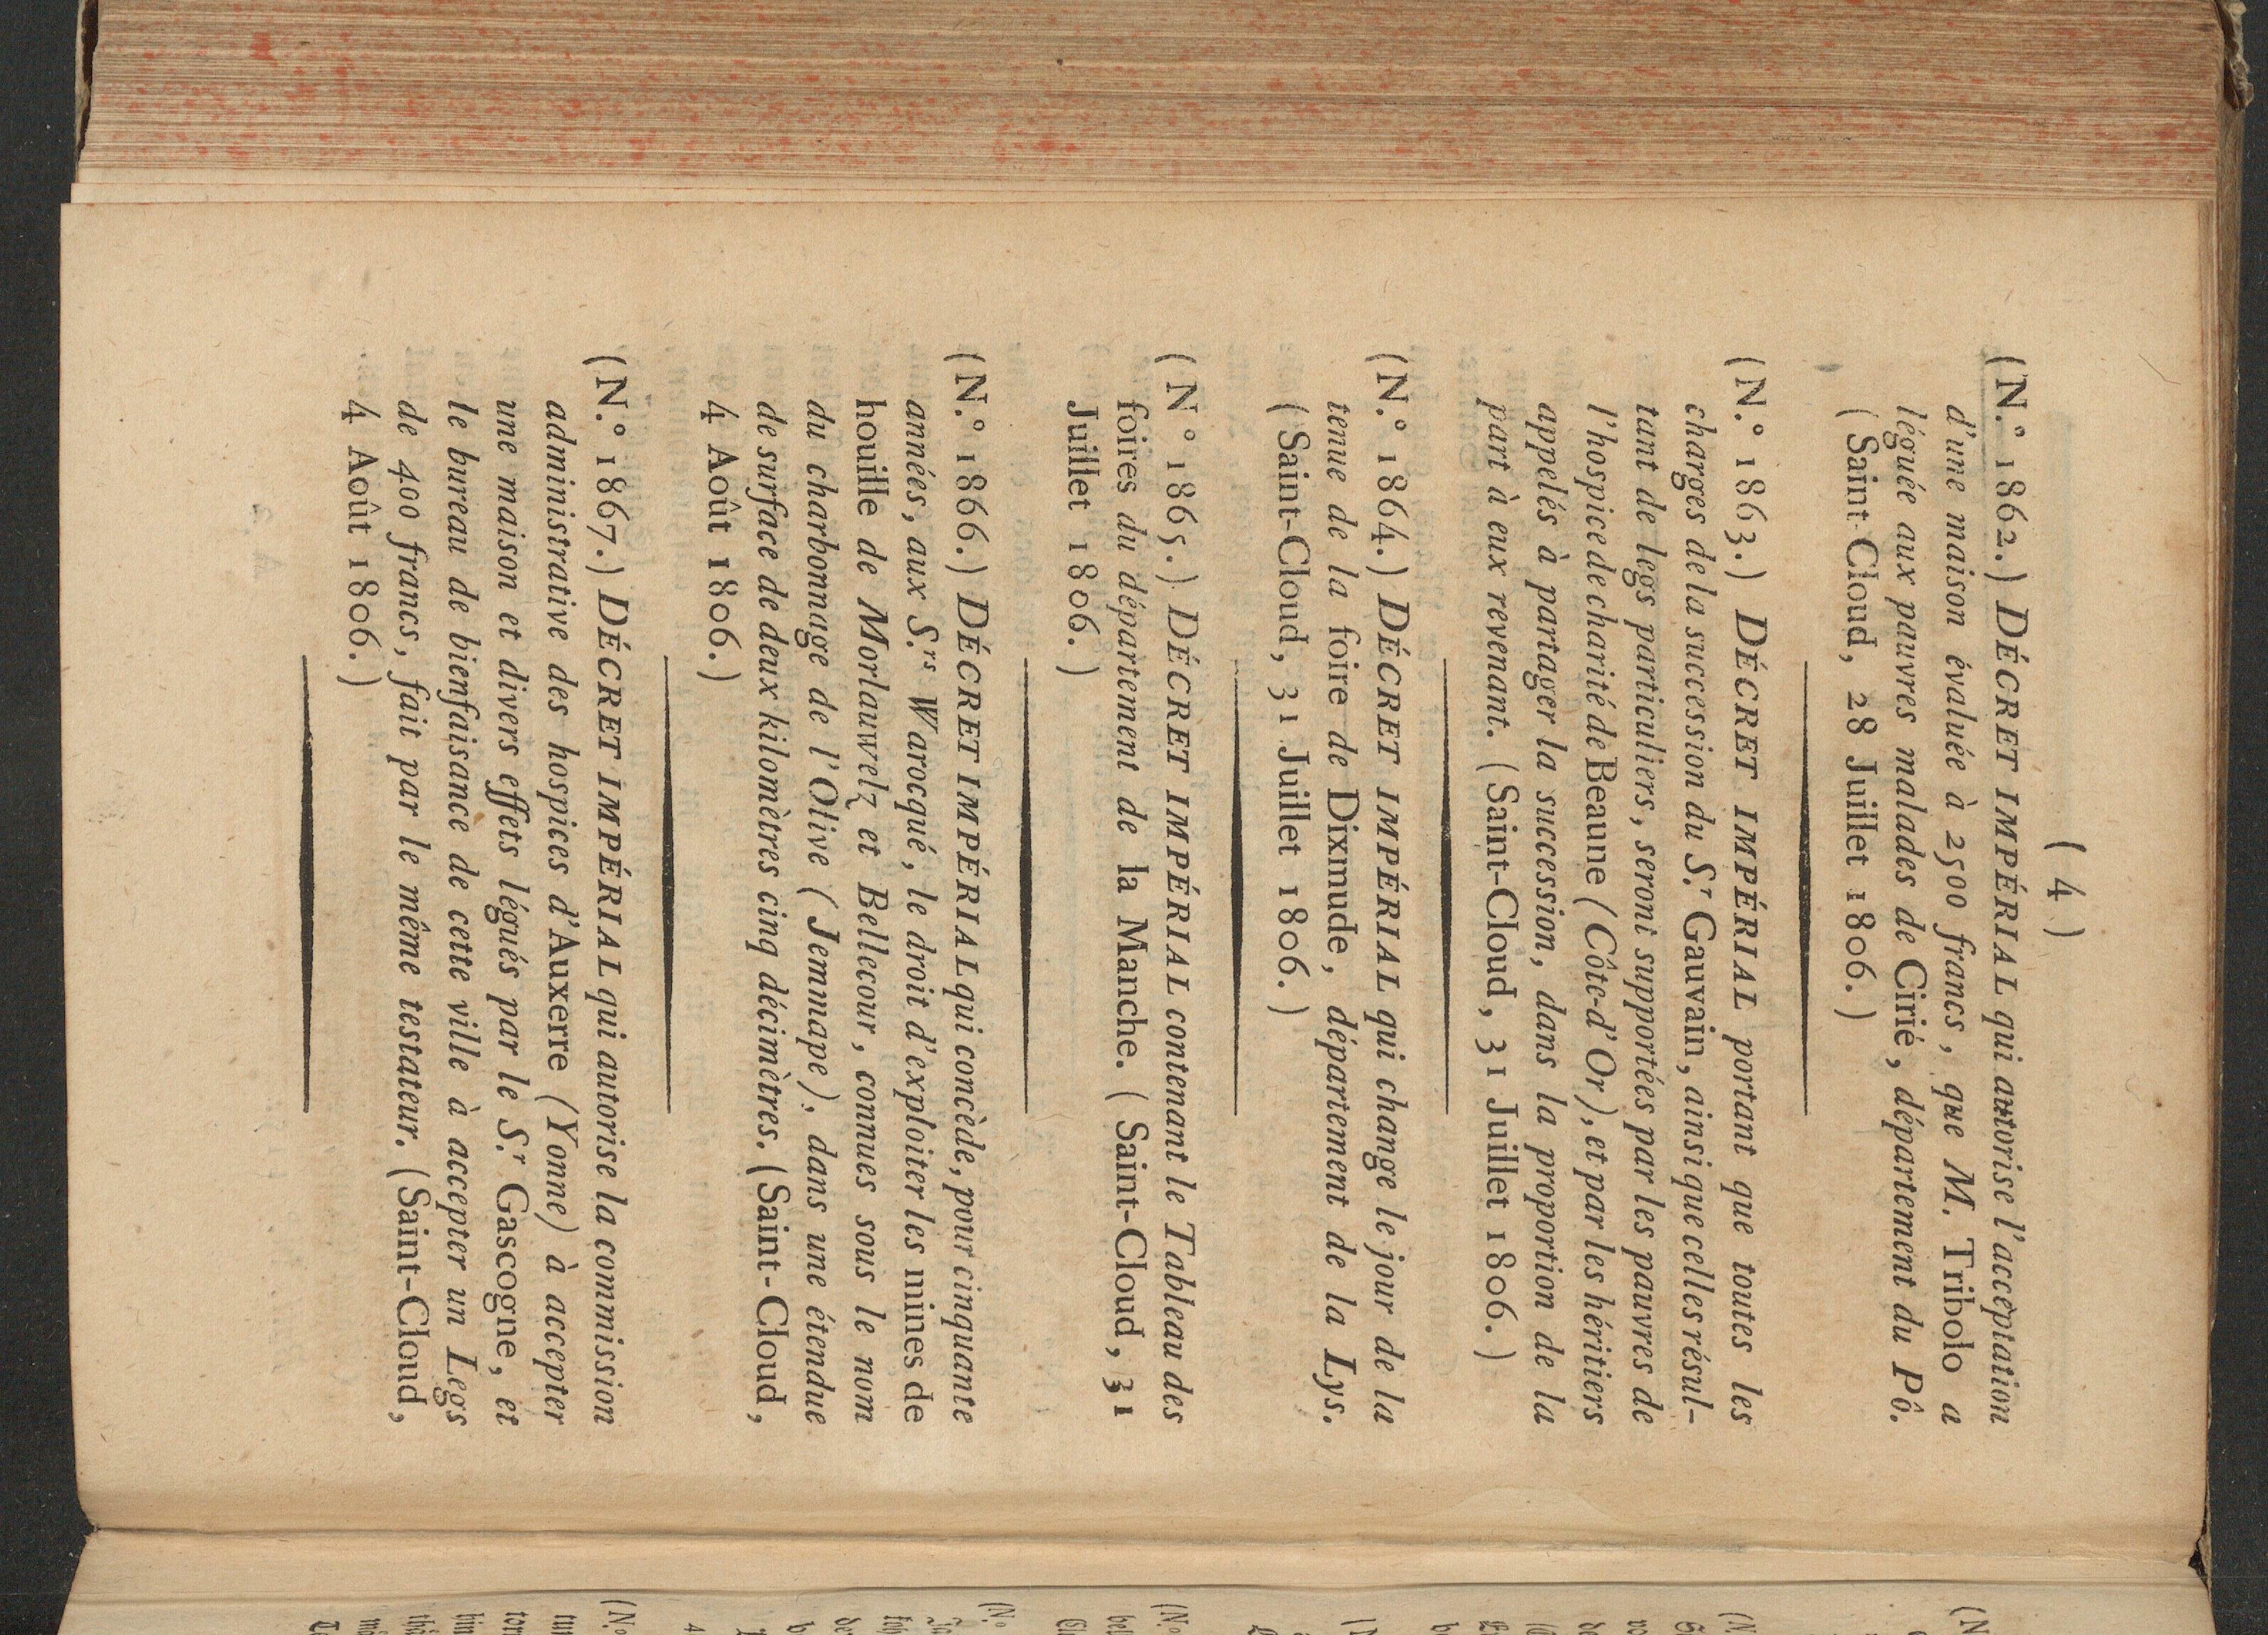 ( 4 )
(N.° 1862.) DÉCRET IMPÉRIAL qui autorise l'acceptation
d'une maison évaluée à 2500 francs, que M. Tribolo a
léguée aux pauvres malades de Cirié, département du Pô.
(Saint-Cloud, 28 Juillet 1806.)
(N.° 1863.) DÉCRET IMPÉRIAL portant que toutes les
charges de la succession du S.r Gauvain, ainsi que celles résul-
tant de legs particuliers, seront supportées par les pauvres de
l'hospice de charité de Beaune (Côte-d'Or), et par les héritiers
appelés à partager la succession, dans la proportion de la
part à eux revenant. (Saint-Cloud, 31 Juillet 1806.)
(N.° 1864.) DÉCRET IMPÉRIAL qui change le jour de la
tenue de la foire de Dixmude, département de la Lys.
(Saint-Cloud, 31 Juillet 1806.)
(N° 1865.) DÉCRET IMPÉRIAL contenant le Tableau des
foires du département de la Manche. (Saint-Cloud, 31
Juillet 1806.)
(N.° 1866.) DÉCRET IMPÉRIAL qui concède, pour cinquante
années, aux S.rs Warocqué, le droit d'exploiter les mines de
houille de Morlauwelz et Bellecour, connues sous le nom
du charbonnage de l'Olive (Jemmape), dans une étendue
de surface de deux kilomètres cinq décimètres. (Saint-Cloud,
4 Août 1806.)
(N.° 1867.) DÉCRET IMPÉRIAL qui autorise la commission
administrative des hospices d'Auxerre (Yonne) à accepter
une maison et divers effets légués par le S.r Gascogne, et
le bureau de bienfaisance de cette ville à accepter un Legs
de 400 francs, fait par le même testateur. (Saint-Cloud,
4 Août 1806.)